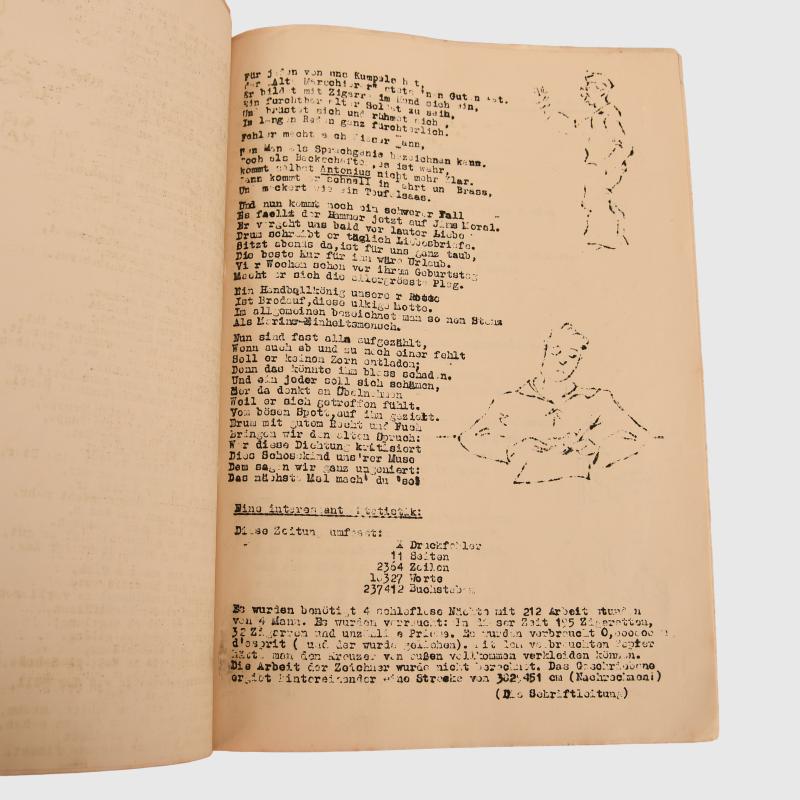 Für jeden von uns Kumpels hat,
der "Alt Marschierer" stets 'nen Guten Rat.
Er bildet mit Zigarre im Mund sich ein,
Ein furchtbar alter Soldat zu sein,
Und brüstet sich und rühmet sich
In langen Reden ganz fürchterlich.
Fehler macht auch dieser Mann,
Den Man als Sprachgenie bezeichnen kann.
Doch als Backschafter, es ist wahr,
kommt selbst Antonius nicht mehr klar.
Dann kommt er schnell in Fahrt un Brass,
Und meckert wie ein Teufelsaas.
Und nun kommt noch ein schwerer Fall
Es faellt der Hammer jetzt auf Jims Moral.
Er vergeht uns bald vor lauter Liebe
Drum schreibt er täglich Liebesbriefe.
Sitzt abends da,ist für uns ganz taub,
Die beste Kur für ihn wäre Urlaub.
Vier Wochen schon vor ihrem Geburtstag
Macht er sich die allergrösste Plag.
Ein Handballkönig unserer Rasse
Ist Brodauf,diese ulkige Motte.
Im allgemeinen bezeichnet man so nen
Als Marine-Einheitsmensch.
Nun sind fast alle aufgezählt,
Wenn auch ab und zu noch einer fehlt
Soll er keinen Zorn entladen;
Denn das könnte ihm bloss schaden.
Und ein jeder soll sich schämen,
Der da denkt an Übelnehmen
Weil er sich getroffen fühlt.
Vom bösen Spott,auf ihn gezielt.
Drum mit gutem Recht und Fuch
bringen wir den alten Spruch:
Wer diese Dichtung kritisiert
Dies Schosskind uns'rer Muse
Dem sagen wir ganz ungeniert:
Das nächste Mal mach' du 'se!
Eine interessante Statistik:
Diese Zeitung umfasst:
X Druckfehler
11 Seiten
2364 Zeilen
Worte
237412 Buchstaben
Es wurden benötigt 4 schlaflose Nächte mit 212 Arbeitsstunden
von 4 Mann. Es wurden verraucht: In dieser Zeit 195 Zigaretten,
32 Zigarren und unzählige Prieme. Es wurden verbraucht
d'esprit ( und der wurde geliehen). Mit dem verbrauchten Papier
hätte man den Kreuzer von außen vollkommen verkleiden können.
Die Arbeit der Zeichner wurde nicht berechnet. Das Geschriebene
ergibt hintereinander eine Strecke von cm (Nachrechnen!)
(Die Schriftleitung)